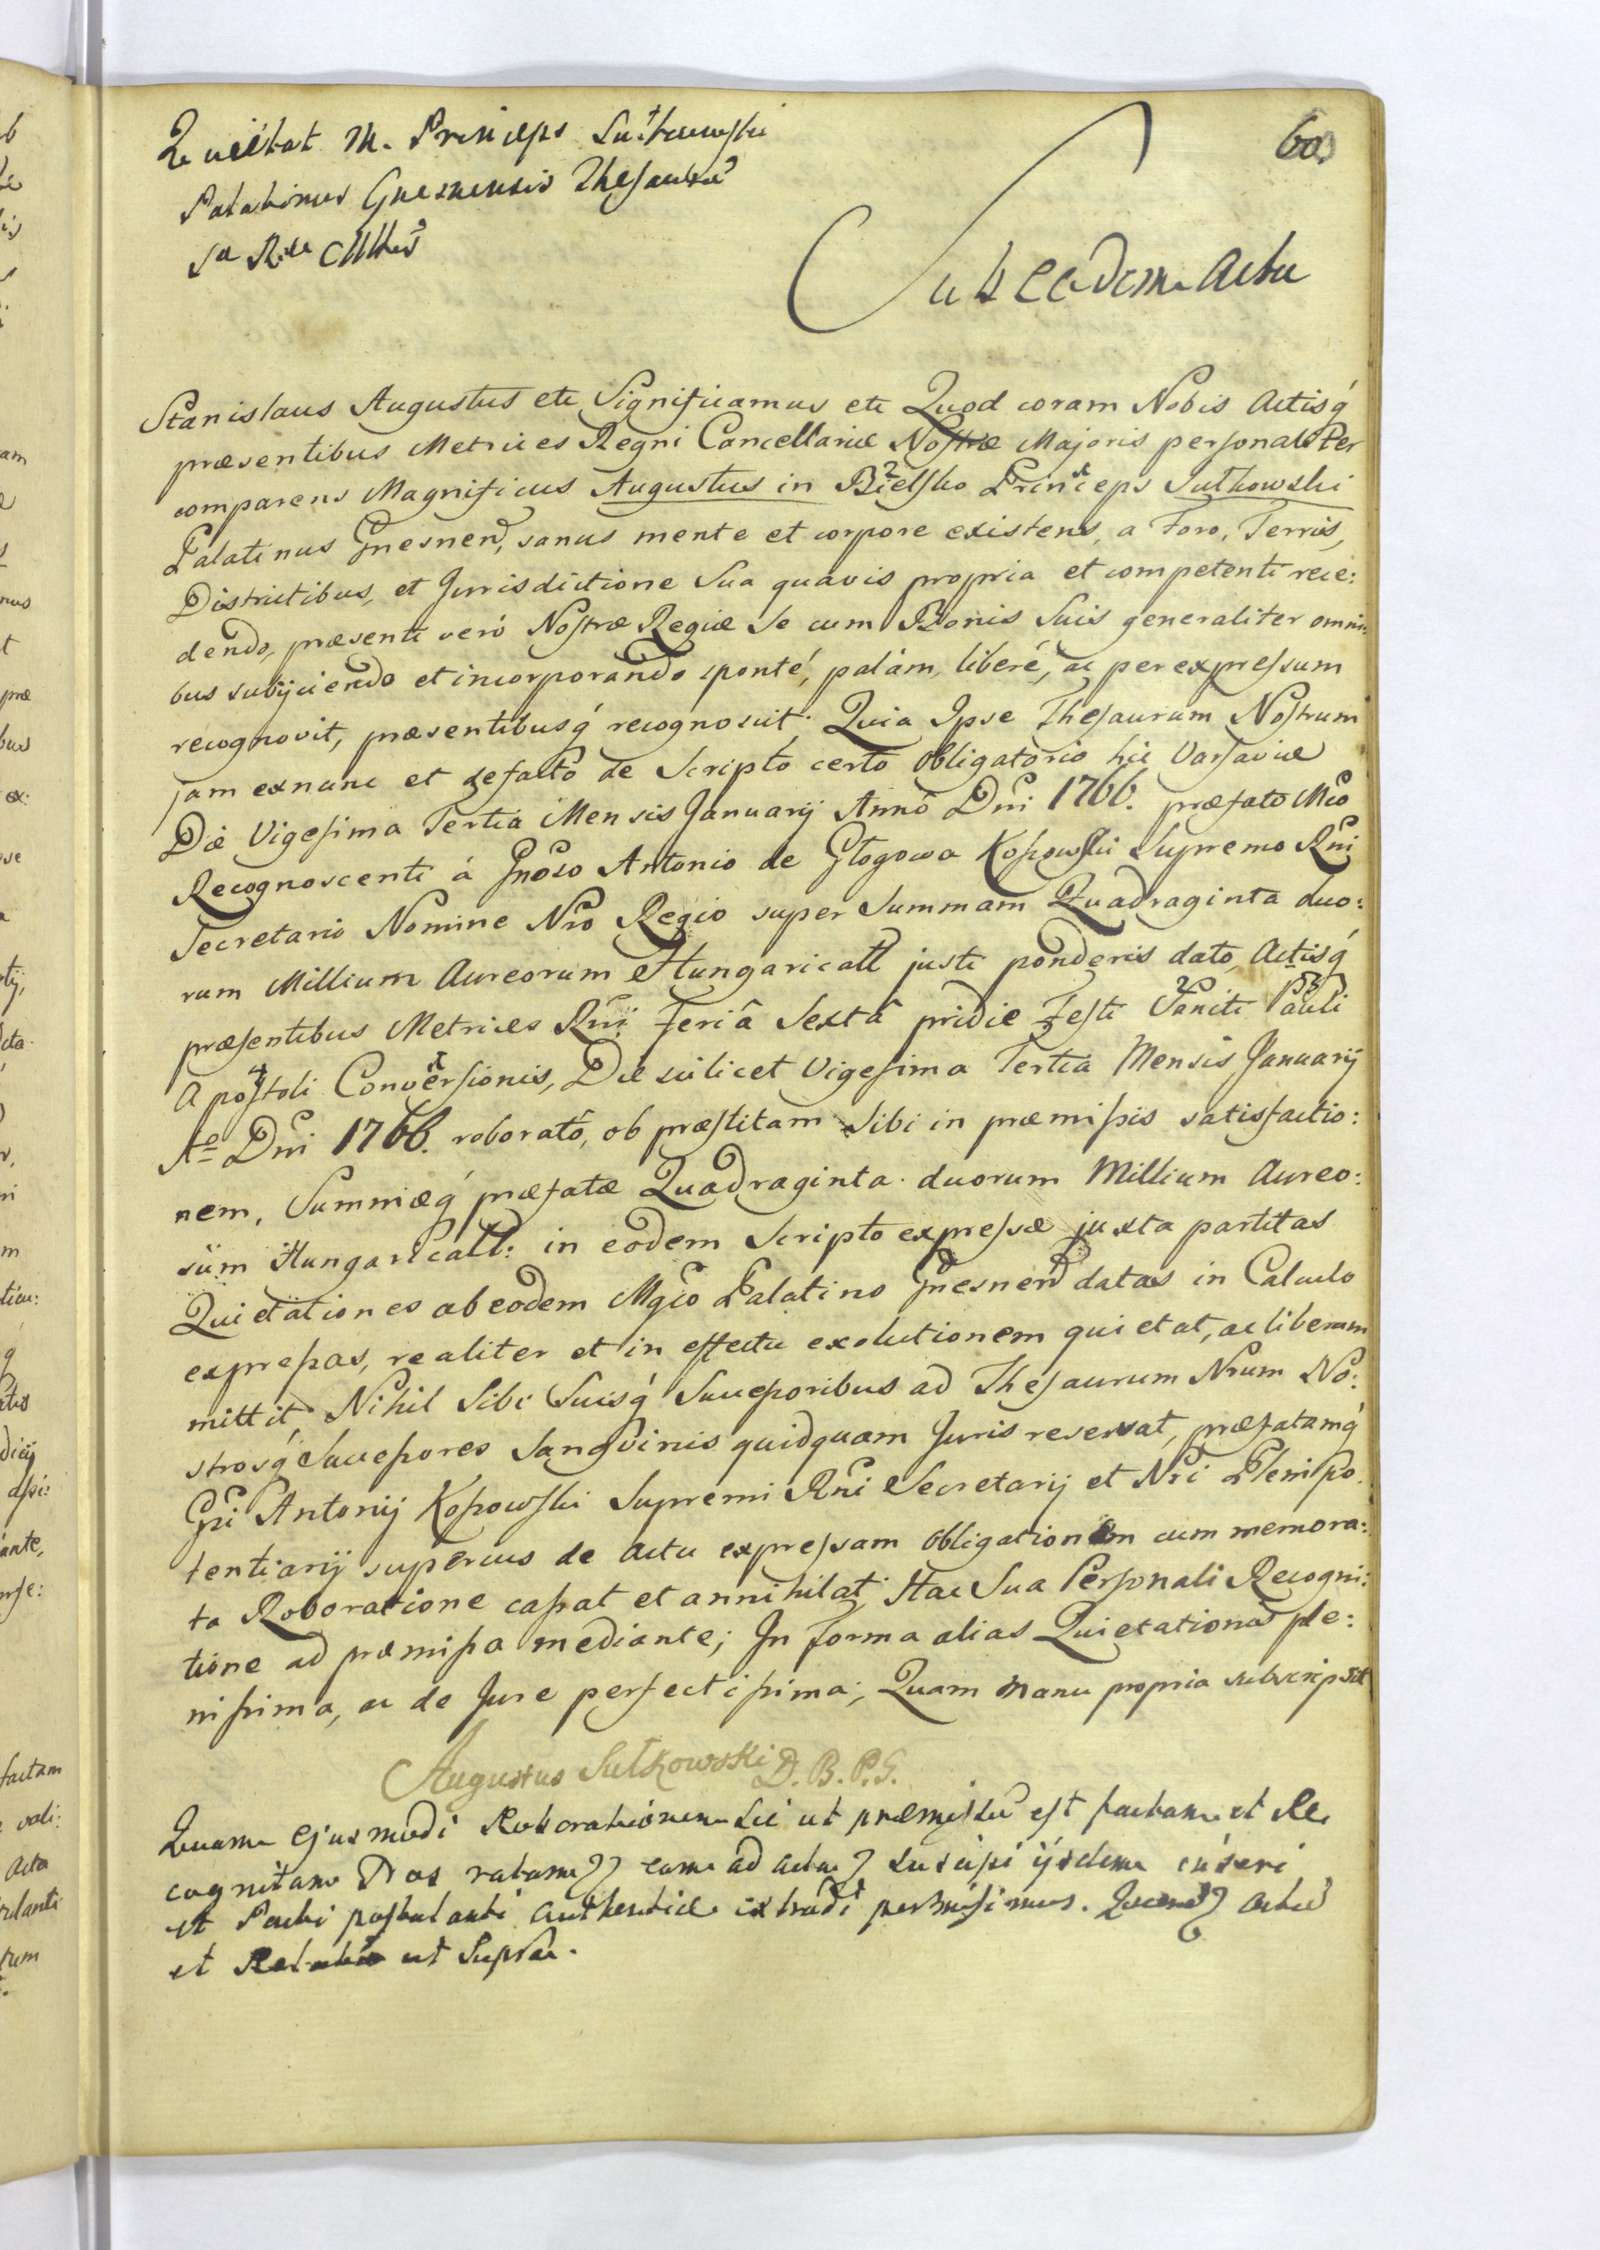 Quietat M. Princeps Sułkowski
Palatinus Gnesnensis Thesaurū
Sa R. M
60
Sub eadem actu
Stanislaus Augustus etc Significamus etc Quod coram Nobis Actisq́
præsentibus Metrices Regni Cancellariæ Nostræ Majoris personaliter
comparens Magnificus Augustus in Bielsko Princeps Sułkowski
Palatinus Gnesnen, sanus mente et corpore existens, a Foro, Terris,
Districtibus, et Jurisdictione Sua quavis propria et competenti rece:
dendo, præsenti veró Nostræ Regiæ se cum Bonis Suis generaliter omni:
bus subijciendo et incorporando sponté, palám, liberé, ac per expressum
recognovit, præsentibusq́ recognoscit; Quia Ipse Thesaurum Nostrum
jam exnunc et defacto de Scripto certo obligatorio hic Varsaviæ
Die Vigesima Tertia Mensis Januarij Annô Dni 1766. præfato Mco
Recognoscenti á Gnoso Antonio de Głogowa Kossowski Supremo Rni
Secretario Nomine Nro Regio super Summam Quadraginta duo:
rum Millium Aureorum Hungaricall justi ponderis dato, Actisq́
præsentibus Metrices Rni Feriâ Sextâ pridie Festi Sancti Pauli
Apostoli Conversionis, Die scilicet Vigesima Tertia Mensis Januarij
Ao Dni 1766. roborató, ob præstitam sibi in præmissis satisfactio:
nem, Summæq́ præfatæ Quadraginta duorum Millium Aureo:
rum Hungaricall: in eodem Scripto expressæ juxta partitas
Quietationes ab eodem Mgco Palatino Gnesnen datas in Calculo
expressas, realiter et in effectu exolutionem quietat, ac liberum
mittit Nihil Sibi Suisq́ Successoribus ad Thesaurum Nrum No:
strosq́ Successores Sangvinis quidquam Juris reservat, præfatamq́
Gni Antonij Kossowski Supremi Rni Secretarij et Nri Plenipo:
tentiarij superius de actu expressam obligationem cum memora:
ta Roboratione cassat et annihilat; Hac Sua Personali Recogni:
tione ad præmissa mediante; In forma alias Quietationis ple:
nissima, ac de Jure perfectissima; Quam manu propria subscripsit
Augustus Sułkowski D. B. P. G.
Quam Ejusmodi Roborationem Sic ut præmissū est factam et Re
cognitam Nos ratam eam ad acta suscipi ijsdem inseri
et Parti postulanti authentice extradi permisimus. actū
et ut Supra.